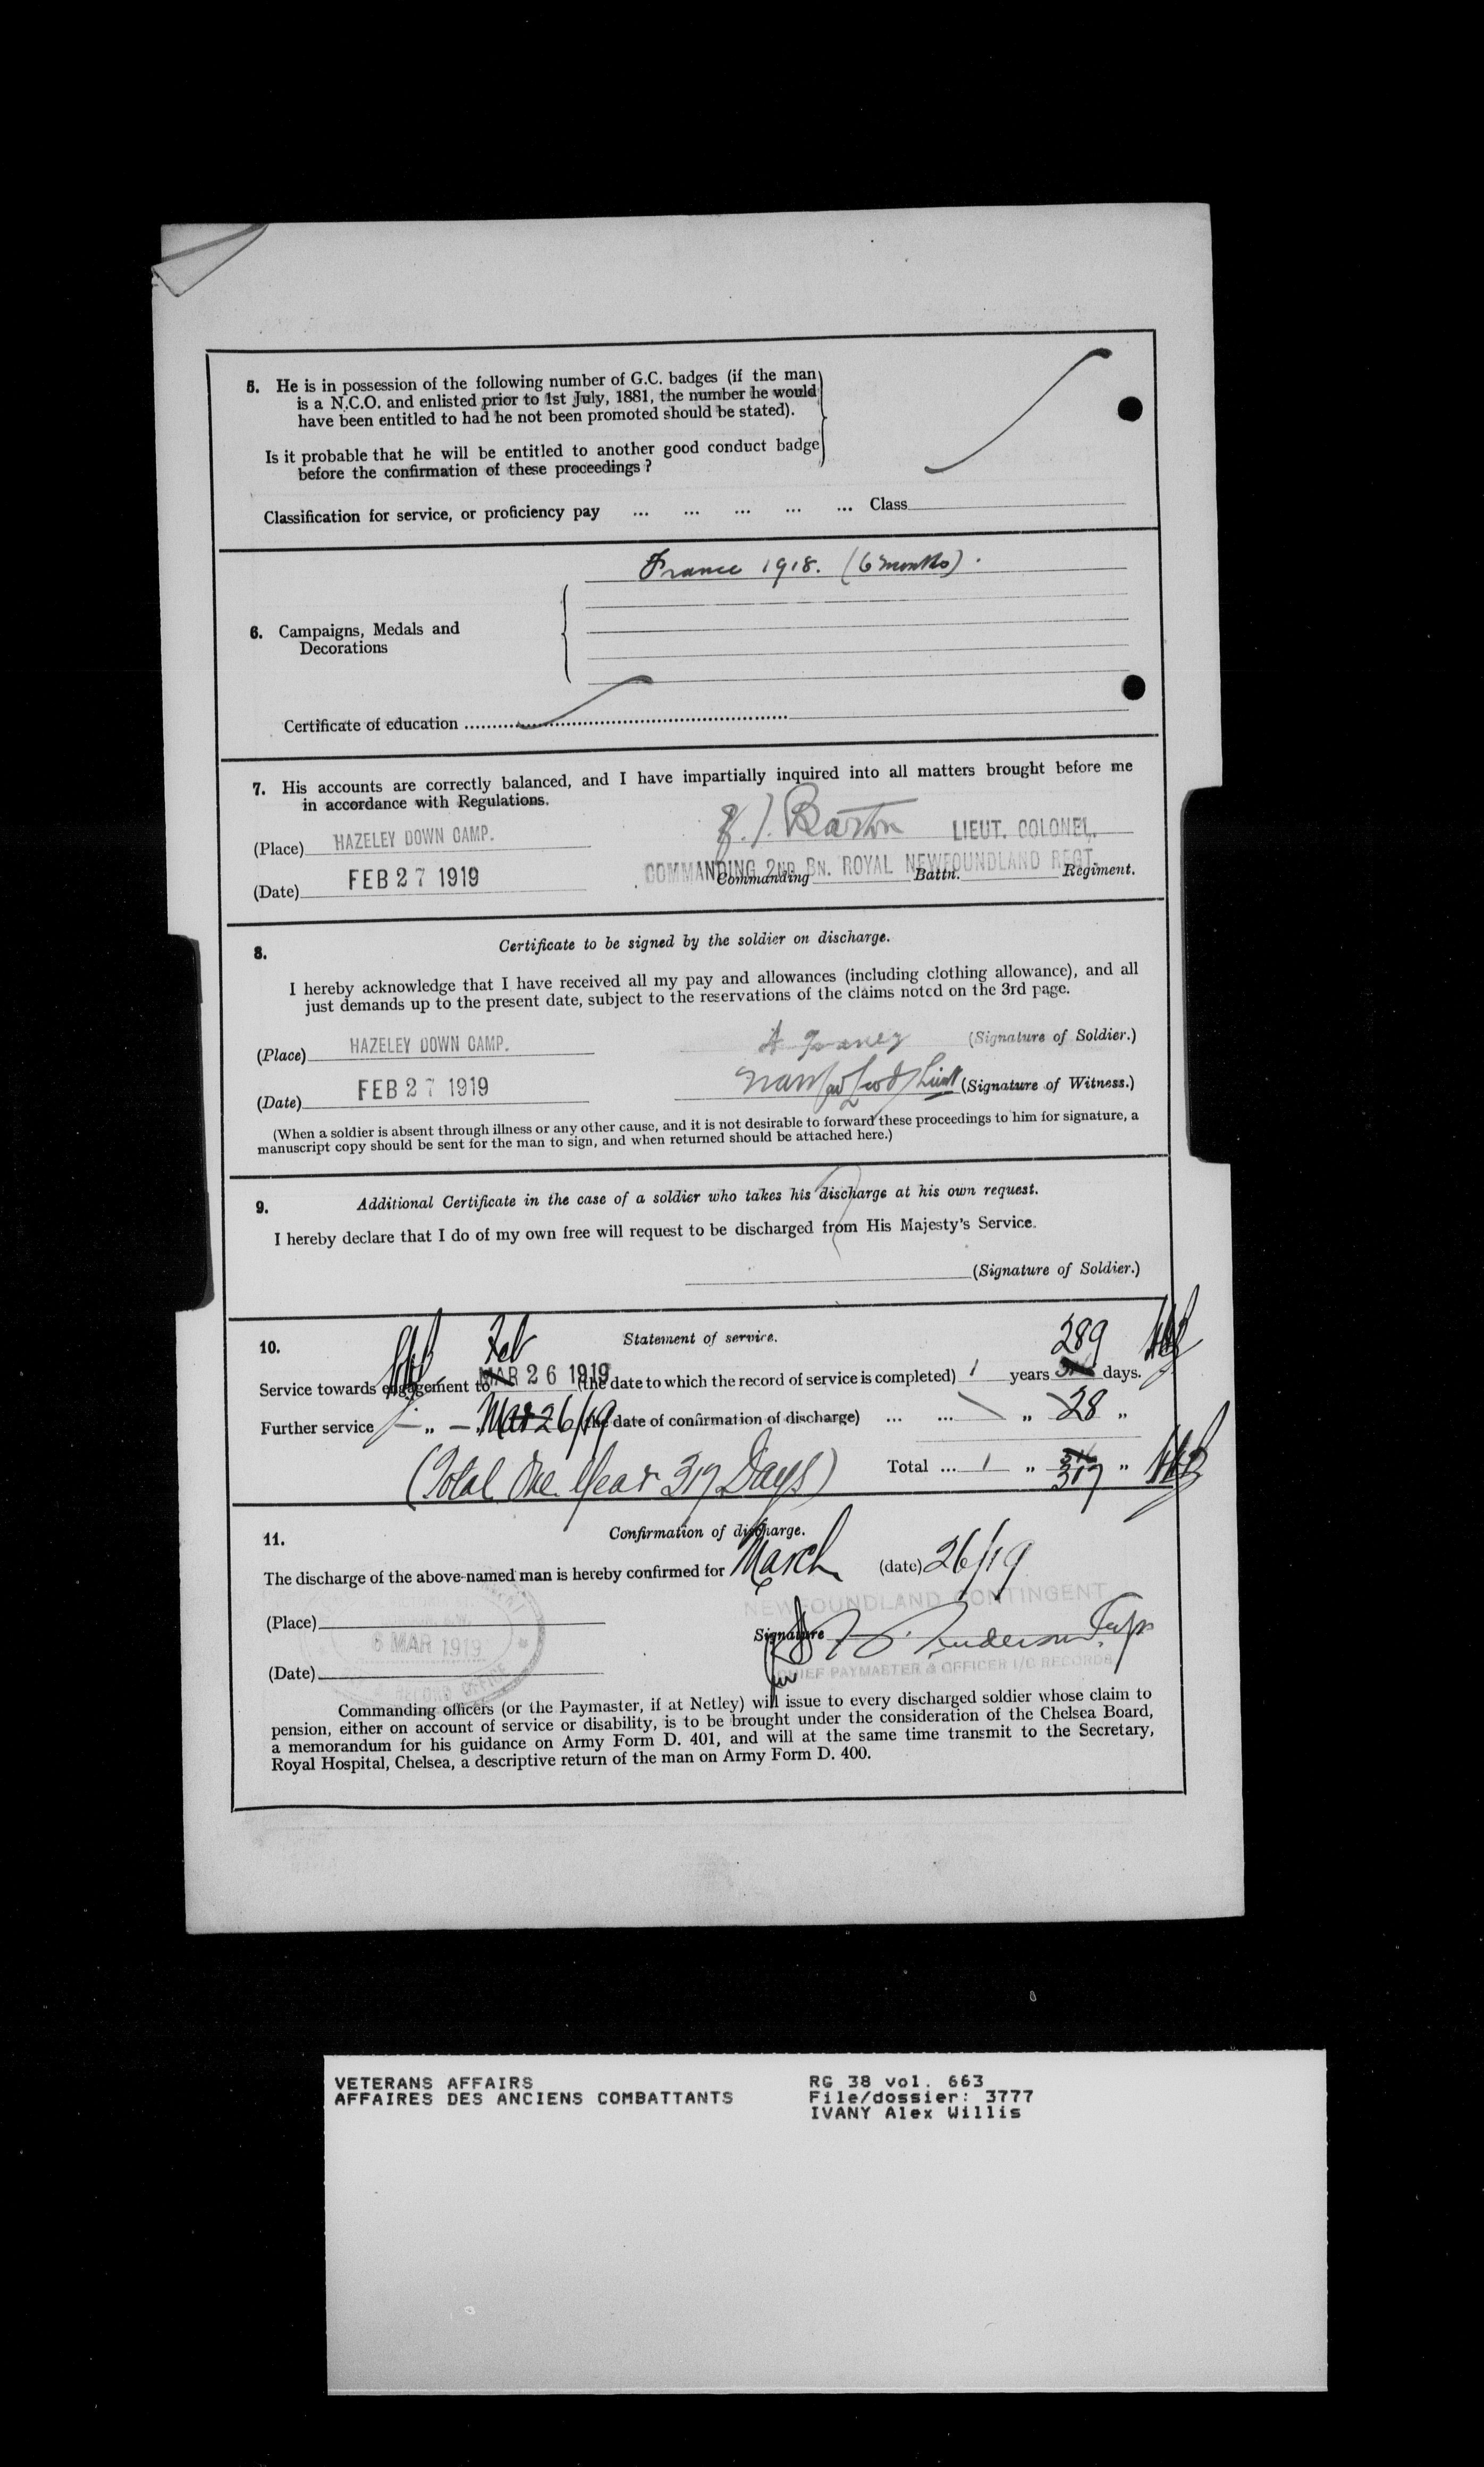 5. He is in possession of the following number of G.C. badges (if the man
is a N.C.O. and enlisted prior to 1st July, 1881, the number he would
have been entitled to had he not been promoted should be stated).
Is it probable that he will be entitled to another good conduct badge
before the confirmation of these proceedings?
Classification for service, or proficiency pay ... ... ... ... ... Class
France 1918. (6 months).
6. Campaigns, Medals and
Decorations
Certificate of education
7. His accounts are correctly balanced, and I have impartially inquired into all matters brought before me
in accordance with Regulations.
(Place) HAZELEY DOWN CAMP. Barton LIEUT. COLONEL,
COMMANDING 2ND BN. ROYAL NEWFOUNDLAND REGT.
(Date) FEB 27 1919 Commanding Battn. Regiment.
8. Certificate to be signed by the soldier on discharge.
I hereby acknowledge that I have received all my pay and allowances (including clothing allowance), and all
just demands up to the present date, subject to the reservations of the claims noted on the 3rd page.
(Place) HAZELEY DOWN CAMP. A (Signature of Soldier.)
(Date) FEB 27 1919 Lieut (Signature of Witness.)
(When a soldier is absent through illness or any other cause, and it is not desirable to forward these proceedings to him for signature, a
manuscript copy should be sent for the man to sign, and when returned should be attached here.)
9. Additional Certificate in the case of a soldier who takes his discharge at his own request.
I hereby declare that I do of my own free will request to be discharged from His Majesty's Service.
(Signature of Soldier.)
10. Statement of service.
Feb 289
Service towards engagement to MAR 26 1919 (the date to which the record of service is completed) 1 years days.
Further service " Mar 26/19 (the date of confirmation of discharge) ... ... " 28 "
(Total One Year 317 Days) Total ... 1 " 317 "
11. Confirmation of discharge.
The discharge of the above-named man is hereby confirmed for March (date) 26/19
NEWFOUNDLAND CONTINGENT
(Place)
Signature
6 MAR 1919
for CHIEF PAYMASTER & OFFICER I/C RECORDS
(Date)
Commanding officers (or the Paymaster, if at Netley) will issue to every discharged soldier whose claim to
pension, either on account of service or disability, is to be brought under the consideration of the Chelsea Board,
a memorandum for his guidance on Army Form D. 401, and will at the same time transmit to the Secretary,
Royal Hospital, Chelsea, a descriptive return of the man on Army Form D. 400.
VETERANS AFFAIRS RG 38 vol. 663
AFFAIRES DES ANCIENS COMBATTANTS File/dossier: 3777
IVANY Alex Willis